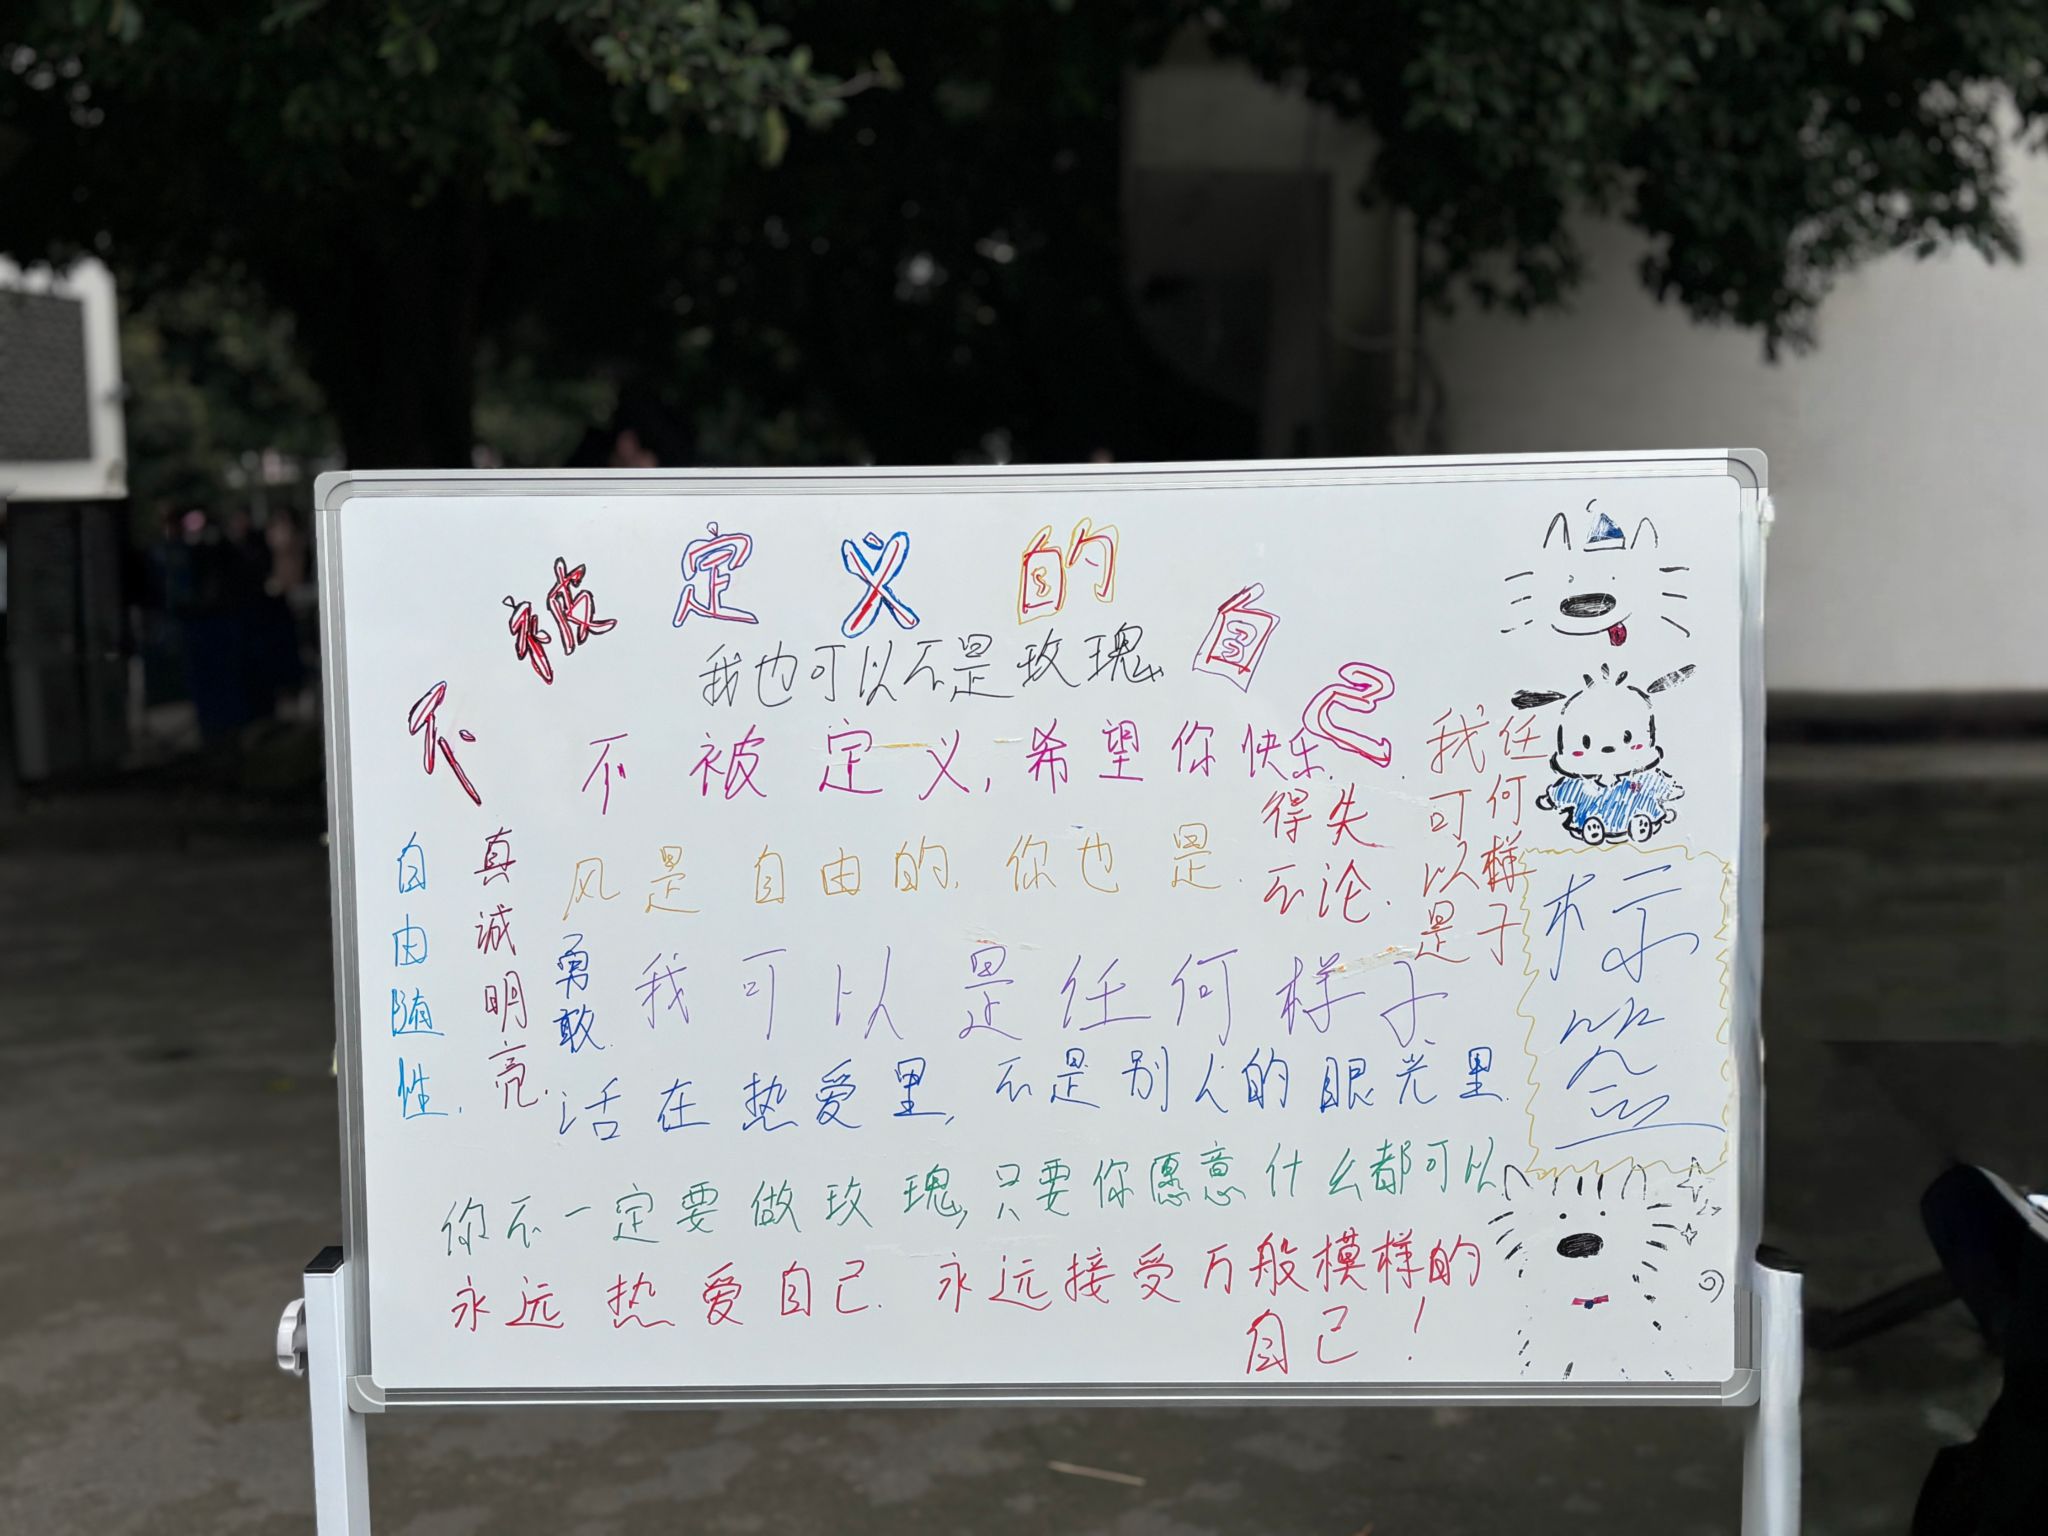 不被定义的自己
我也可以不是玫瑰
不被定义,希望你快乐.
得失
不论.
我可以是
任何样子
自由随性.
真诚明亮.
风是自由的.你也是.
勇敢.
我可以是任何样子
活在热爱里,不是别人的眼光里.
标签
你不一定要做玫瑰,只要你愿意什么都可以
永远热爱自己.永远接受万般模样的
自己!